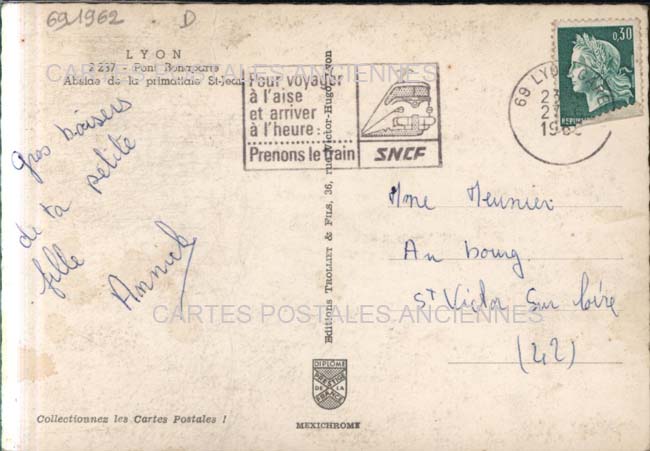 691962 D
LYON
2 237 - Pont Bonaparte
Abside de la primatiale St-Jean
Pour voyager
à l'aise
et arriver
à l'heure :
Prenons le train
SNCF
69 LYON
196
0,30
gros baisers
de ta petite
fille
Annick
Mme Meunier
Au bourg
St Victor sur Loire
(42)
Editions TROLLIET & FILS, 36, rue Victor-Hugo, Lyon
DIPLOME
PRESTIGE
DE LA
FRANCE
MEXICHROME
Collectionnez les Cartes Postales !
CARTES POSTALES ANCIENNES
CARTES POSTALES ANCIENNES